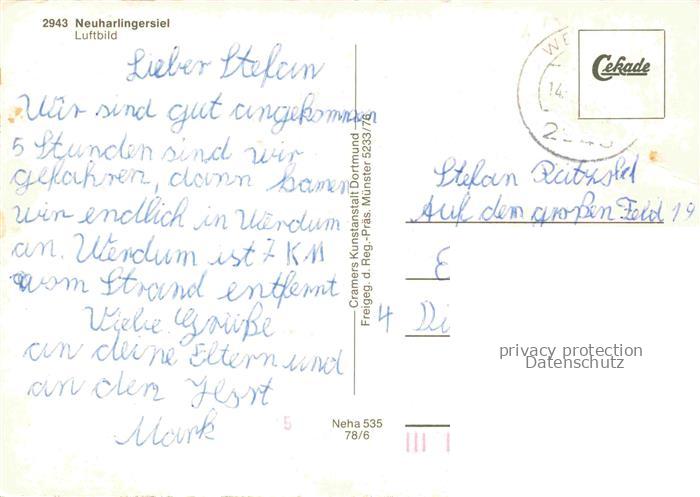 2943 Neuharlingersiel
Luftbild
Lieber Stefan
Wir sind gut angekommen
5 Stunden sind wir
gefahren, dann kamen
wir endlich in Werdum
an. Werdum ist 7 KM
vom Strand entfernt
Viele Grüße
an deine Eltern und
an den
Mark
5
Cramers Kunstanstalt Dortmund
Freigeg. d. Reg.-Präs. Münster 5233/78
Neha 535
78/6
Cekade
WE
14.
Stefan
Auf dem großen Feld 19
E
4 Di
privacy protection
Datenschutz